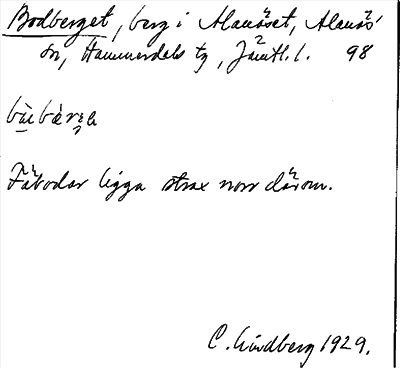 Bodberget, berg i Alanäset, Alanäs'
sn, Hammerdals tg, Jämtl. l. 98
Fäbodar ligga strax norr därom.
C. Lindberg 1929.